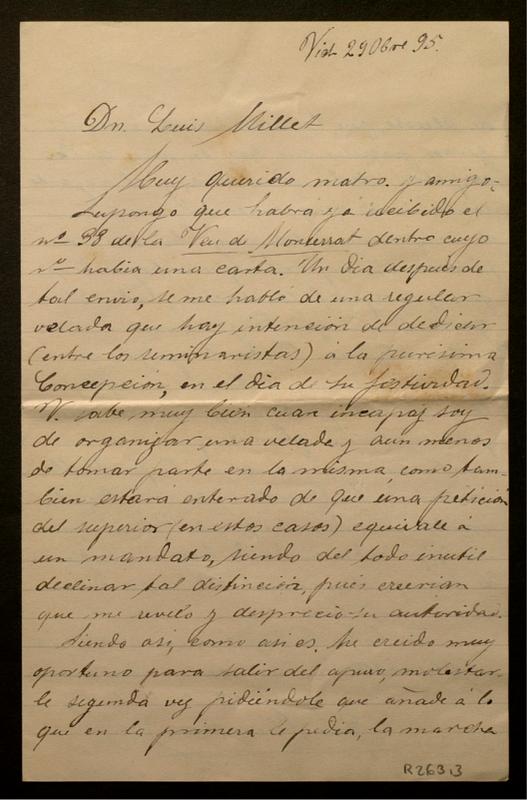 Vich 29 Obre 95.
Dn. Luis Millet
Muy querido matro. y amigo.
Supongo que habrá ya recibido el
nº 38 de la Veu de Monserrat dentro cuyo
nº habia una carta. Un dia después de
tal envio, se me habló de una regular
velada que hay intención de dedicar
(entre los seminaristas) á la purisima
Concepción, en el dia de su festividad.
V. sabe muy bien cuan incapaz soy
de organizar una velada y aun menos
de tomar parte en la misma, como tam-
bien estará enterado de que una petición
del superior (en estos casos) equivale á
un mandato, siendo del todo inutil
declinar tal distinción, pues creerian
que me revelo y desprecio su autoridad.
Siendo asi, como asi es, he creido muy
oportuno para salir del apuro, molestar-
le segunda vez pidiéndole que añade á lo
que en la primera le pedia, la marcha
R263,3